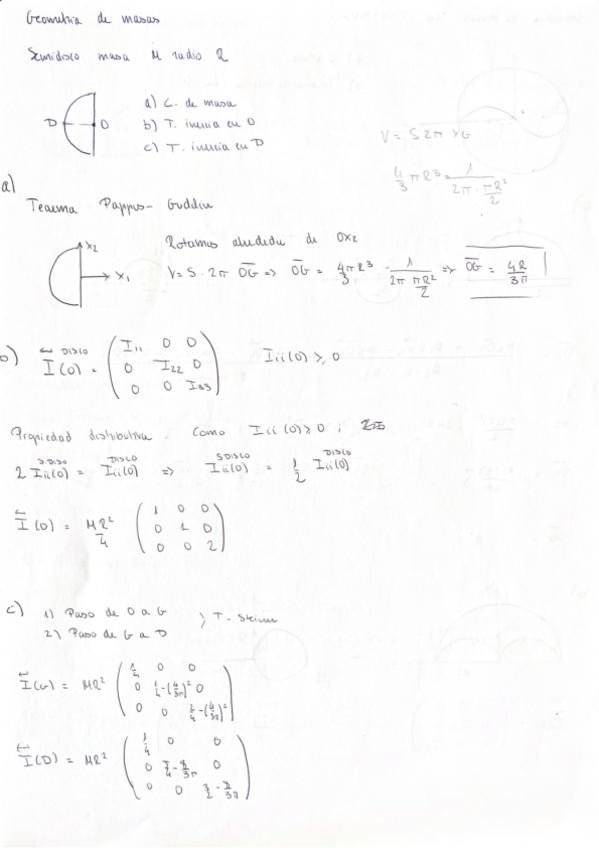 Geometria de masas
Semidisco masa M radio R
D O
a) C. de masa
b) T. inercia en O
c) T. inercia en D
V = S 2π YG
4/3 πR³ = 1/(2π · πR²/2)
a)
Teorema Pappus-Guldin
X2
X1
Rotamos alrededor de OX2
V = S · 2π OG => OG = 4/3 πR³ · 1/(2π πR²/2) => OG = 4R/3π
b) I(O) DISCO = ( I11 0 0
0 I22 0
0 0 I33 ) Iii(O) ≥ 0
Propiedad distributiva. Como Iii(O) ≥ 0 ;
2 Iii(O) SDISCO = Iii(O) DISCO => Iii(O) SDISCO = 1/2 Iii(O) DISCO
I(O) = MR²/4 ( 1 0 0
0 1 0
0 0 2 )
c) 1) Paso de O a G
2) Paso de G a D
} T. Steiner
I(G) = MR² ( 1/4 0 0
0 1/4-(4/3π)² 0
0 0 1/2-(4/3π)² )
I(D) = MR² ( 1/4 0 0
0 5/4-8/3π 0
0 0 3/2-8/3π )